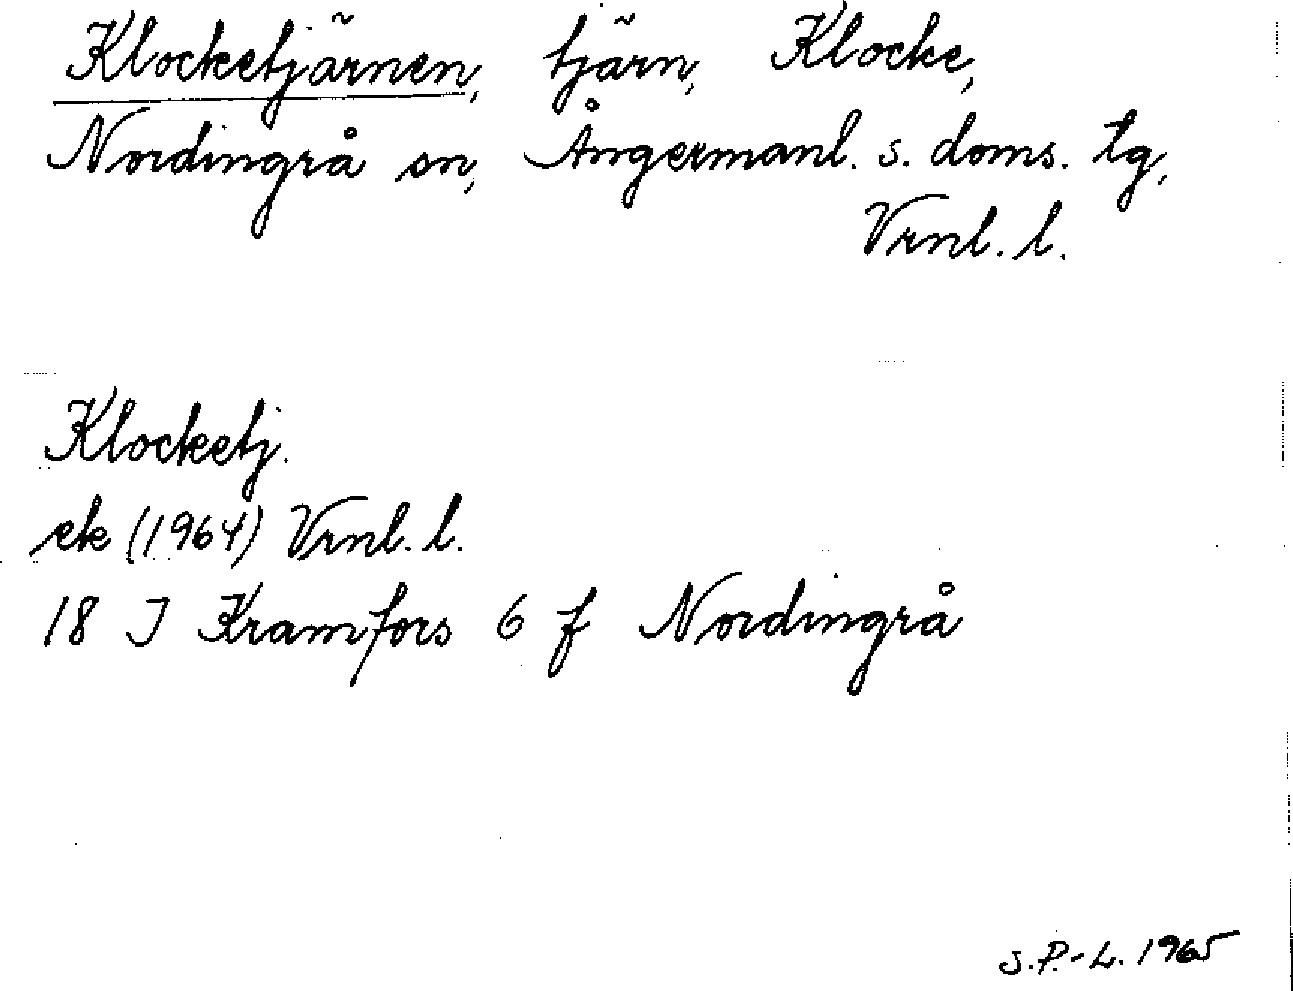 Klocketjärnen, tjärn, Klocke,
Nordingrå sn, Ångermanl. s. doms. tg,
Vrnl. l.
Klocketj.
ek (1964) Vrnl. l.
18 J Kramfors 6 f Nordingrå
S.P.-L. 1965